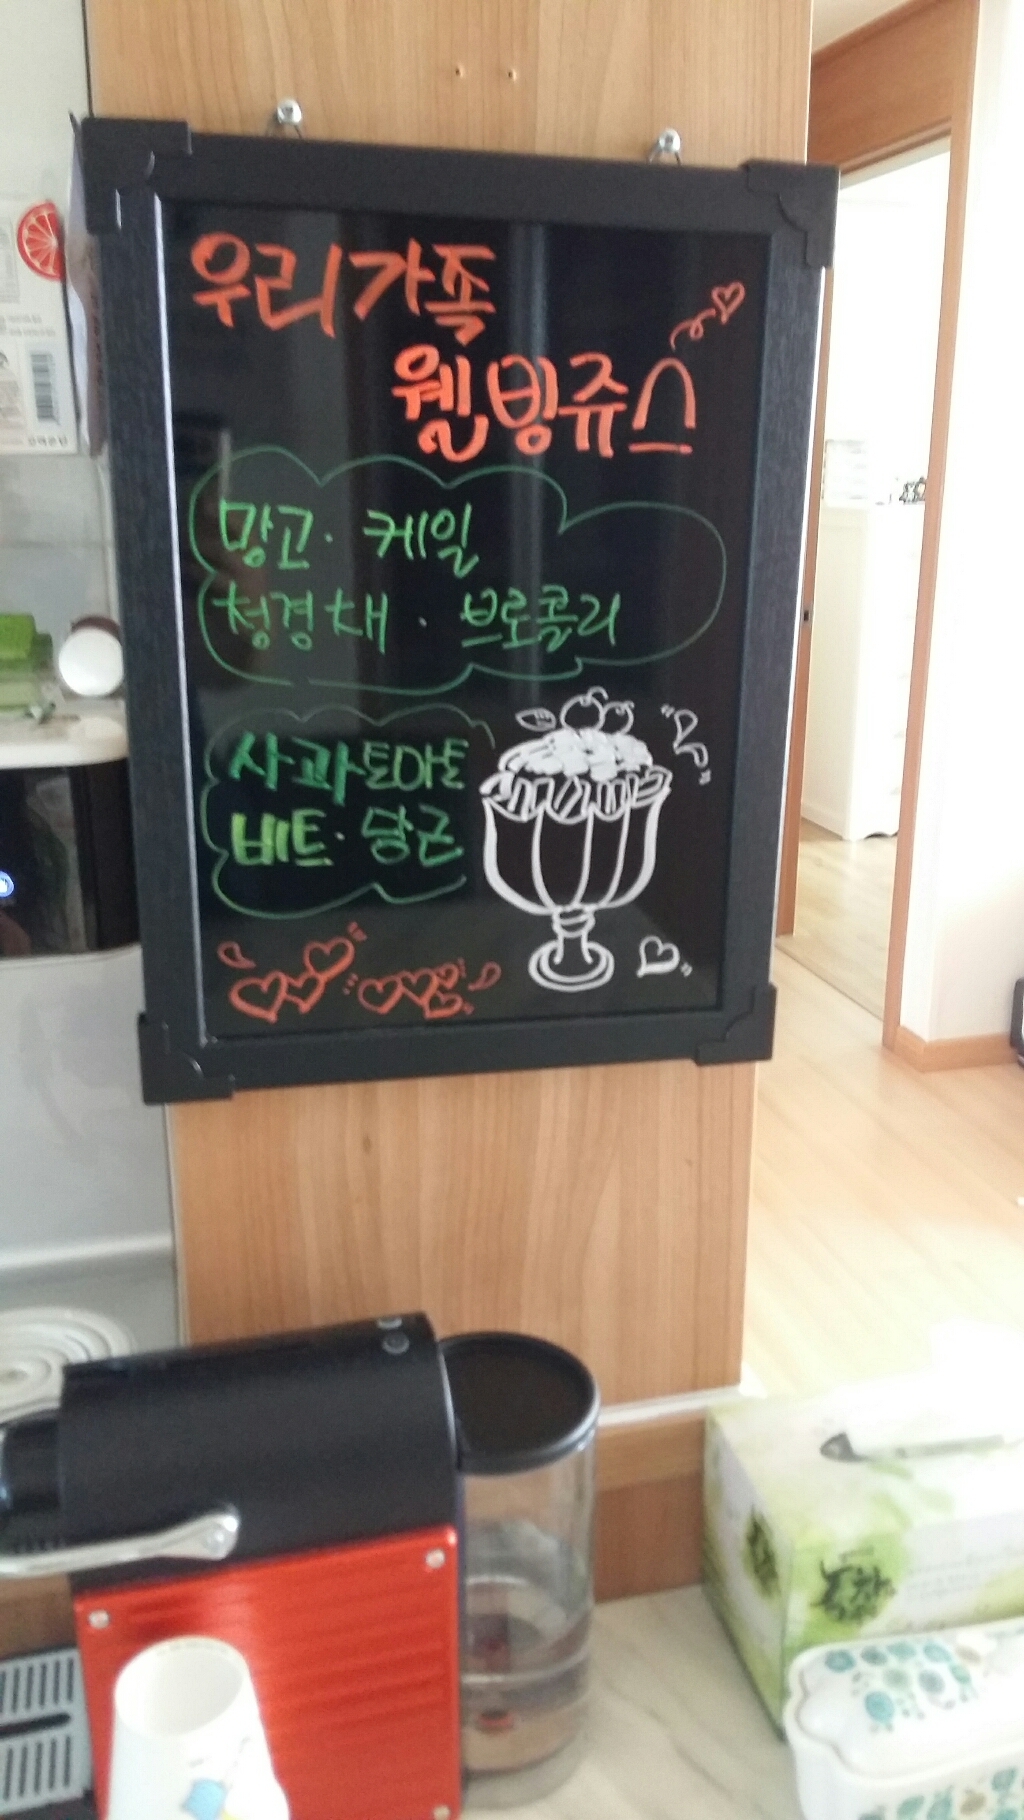 우리가족
웰빙쥬스
망고· 케일
청경채 · 브로콜리
사과토마토
비트· 당근